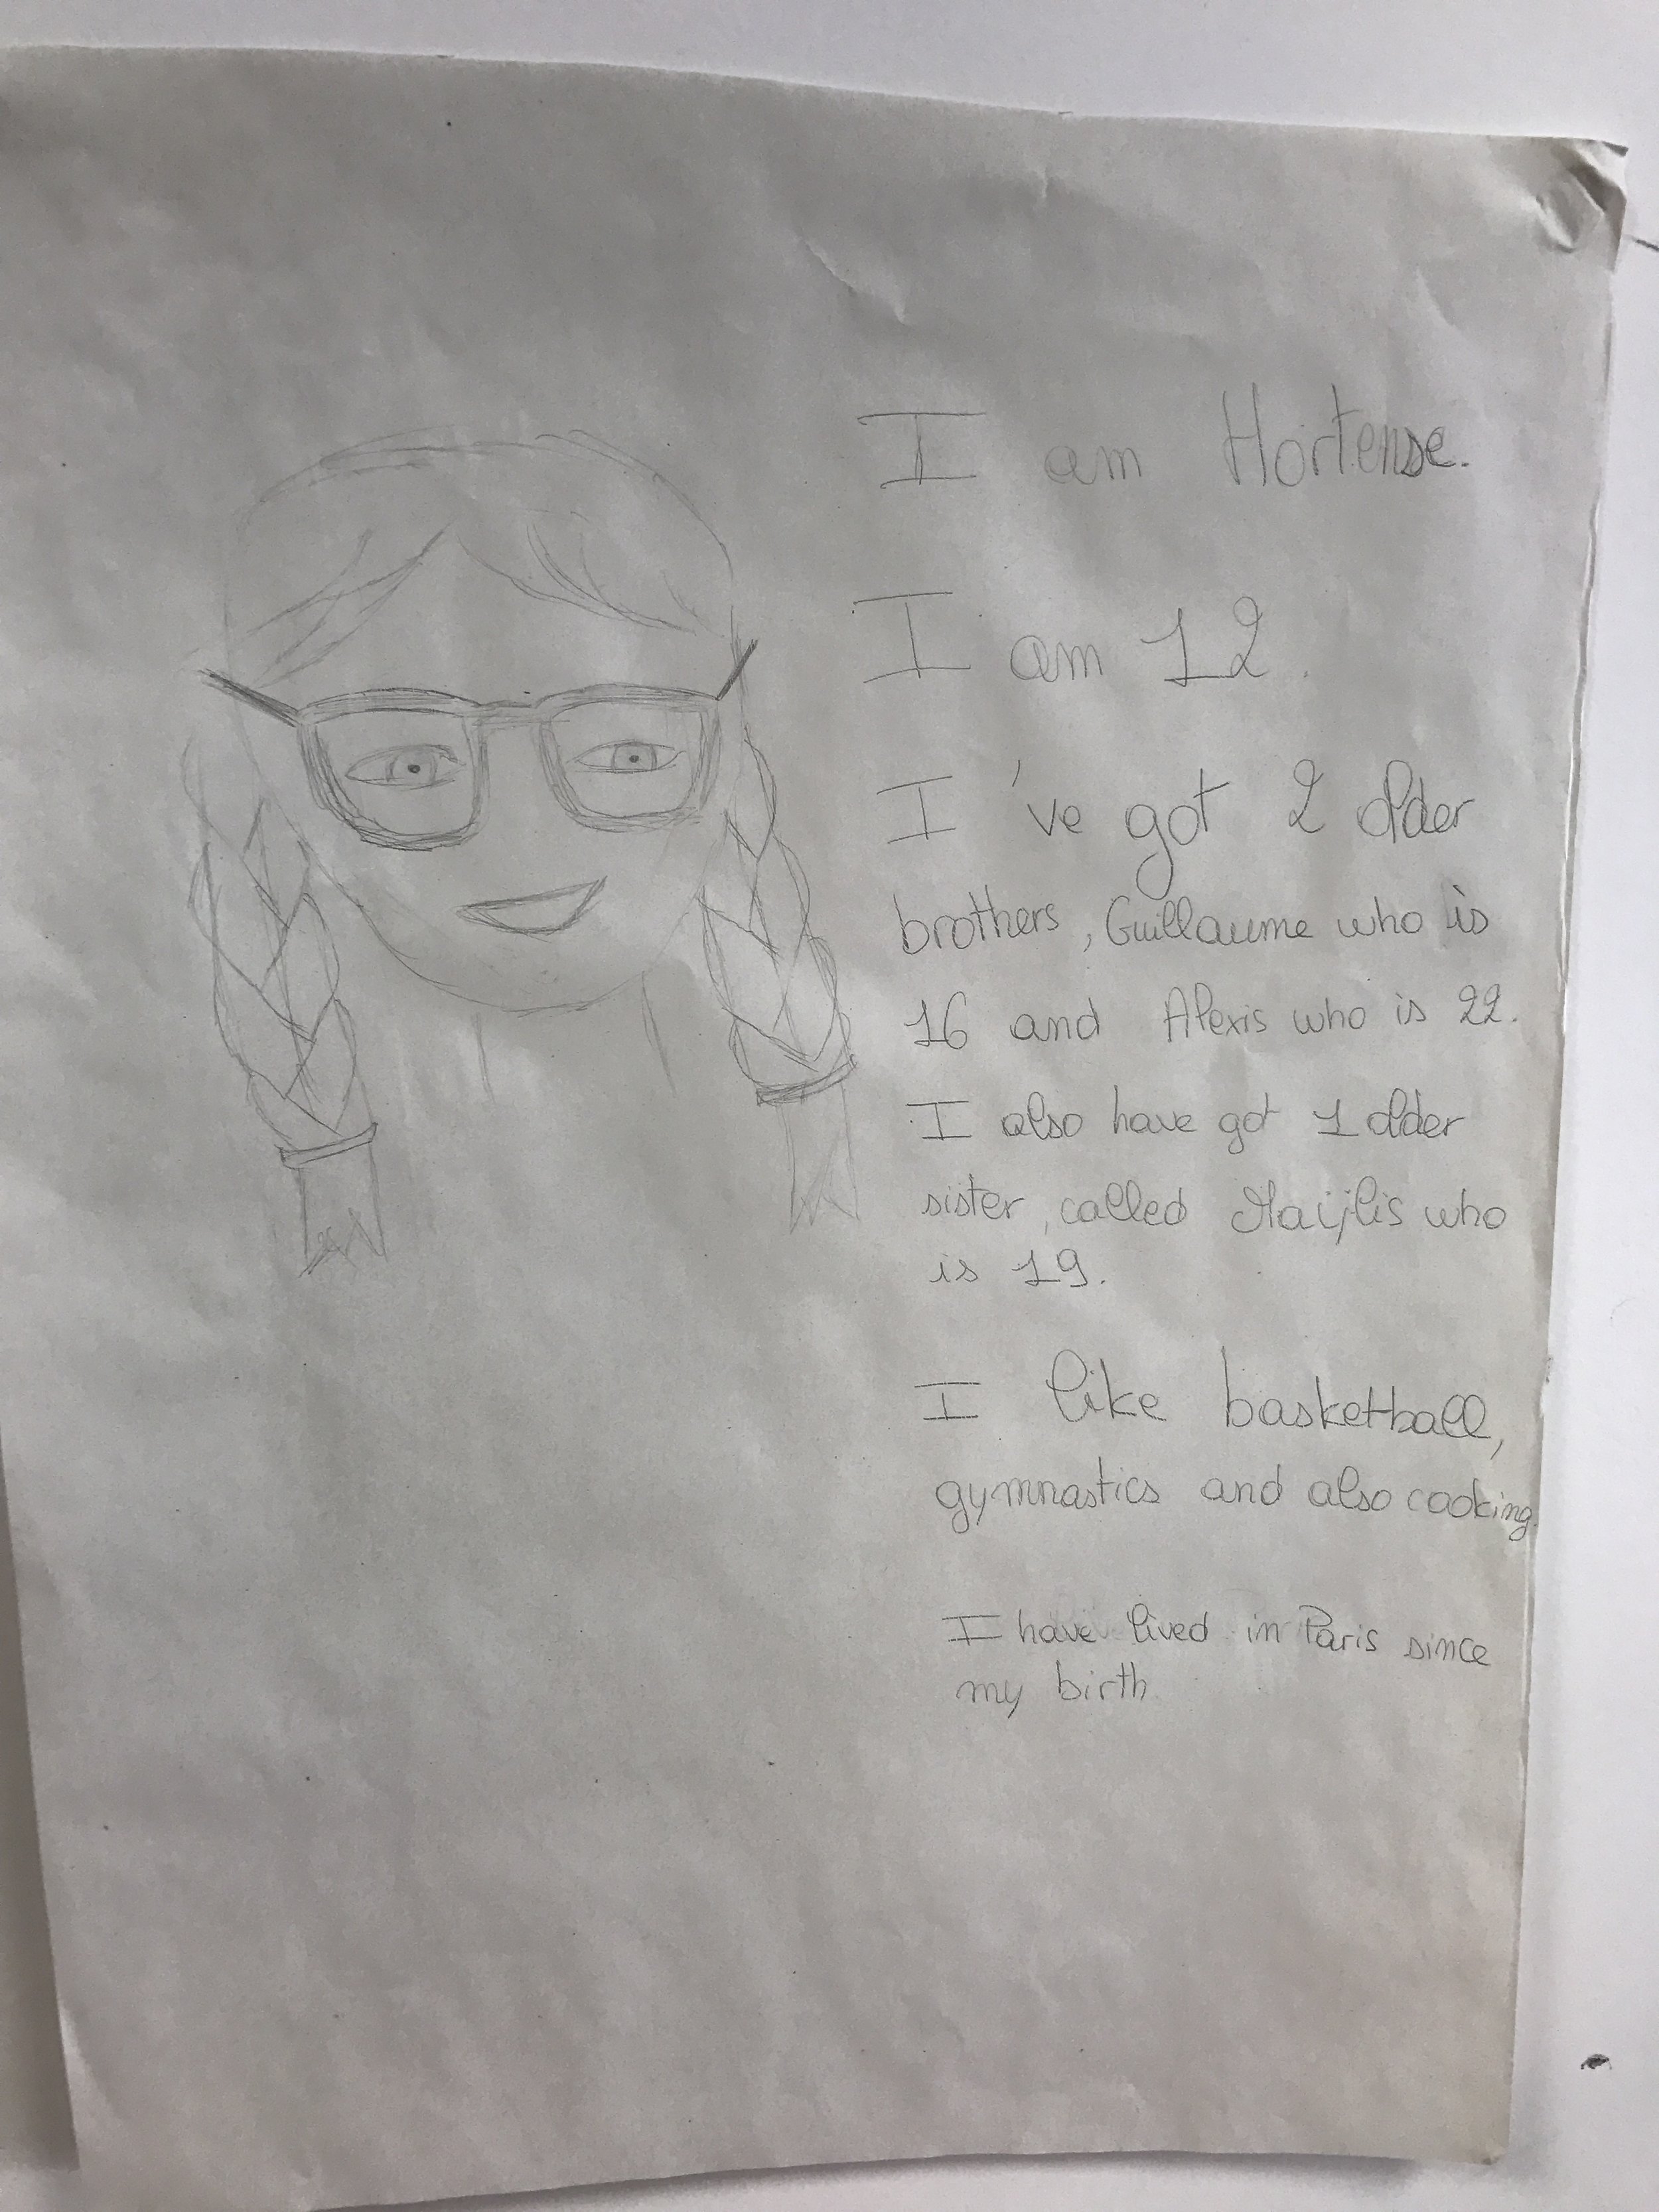 I am Hortense.
I am 12.
I 've got 2 older
brothers, Guillaume who is
16 and Alexis who is 22.
I also have got 1 older
sister, called who
is 19.
I like basketball,
gymnastics and also cooking.
I have lived in Paris since
my birth